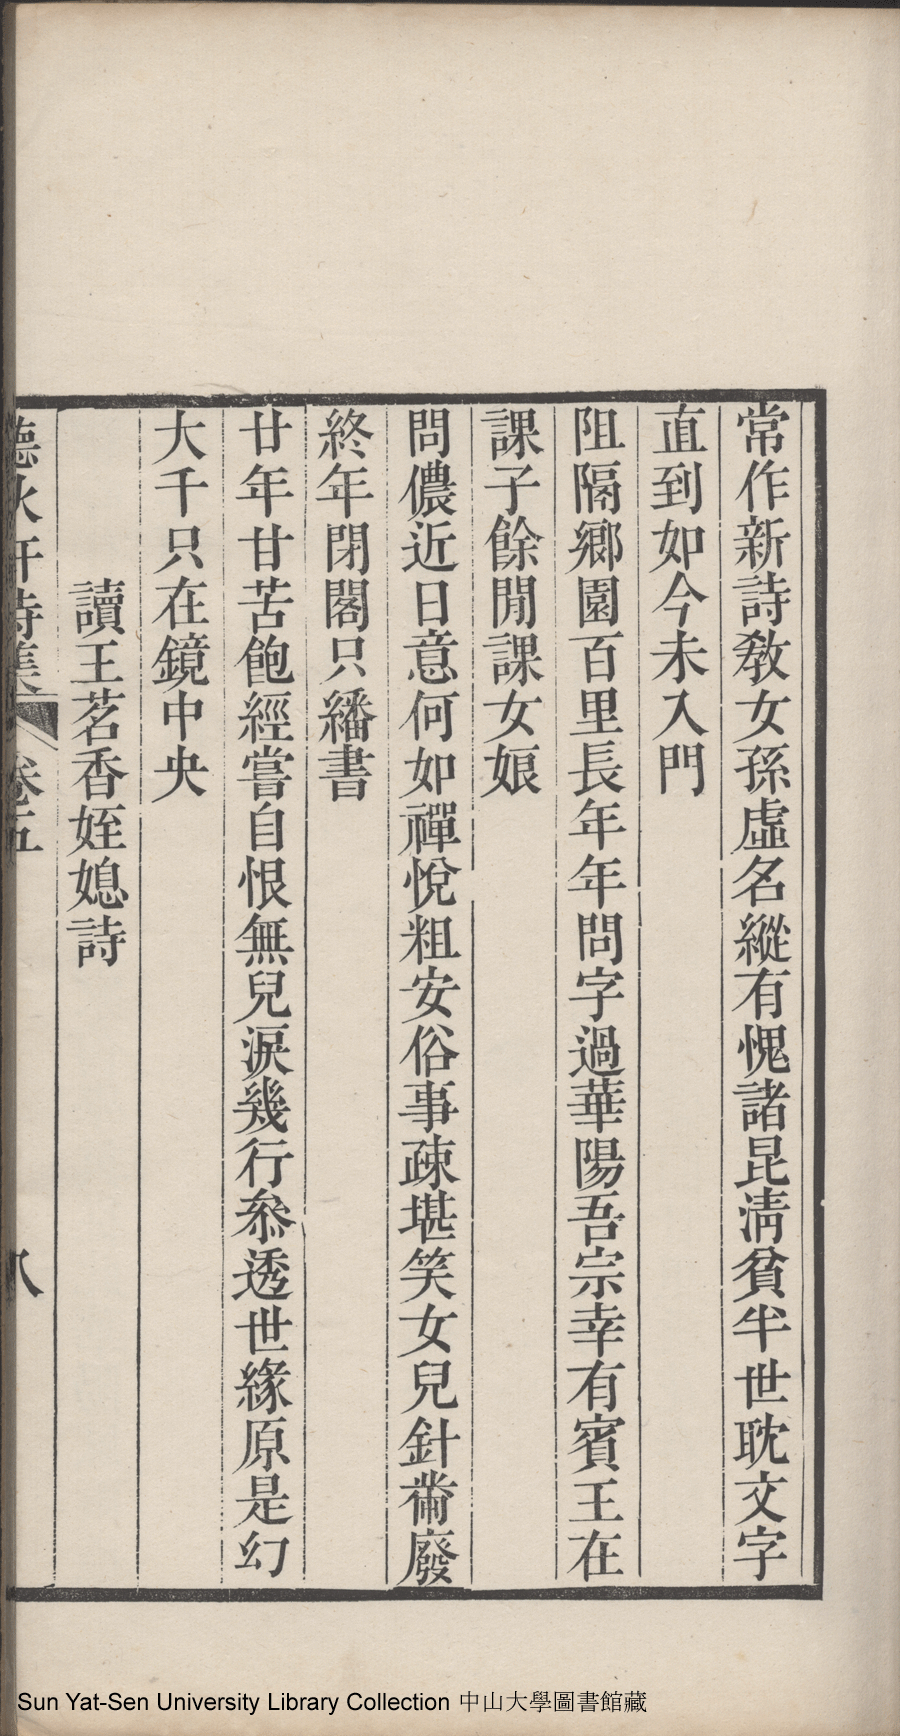 常作新詩敎女孫虛名縱有愧諸昆淸貧半世耽文字
直到如今未入門
阻隔鄉園百里長年年問字過華陽吾宗幸有賓王在
課子餘閒課女娘
問儂近日意何如禪悅粗安俗事疎堪笑女兒針黹廢
終年閉閣只繙書
廿年甘苦飽經嘗自恨無兒淚幾行叅透世緣原是幻
大千只在鏡中央
讀王茗香姪媳詩
聽秋軒詩集 卷五 八
Sun Yat-Sen University Library Collection 中山大學圖書館藏